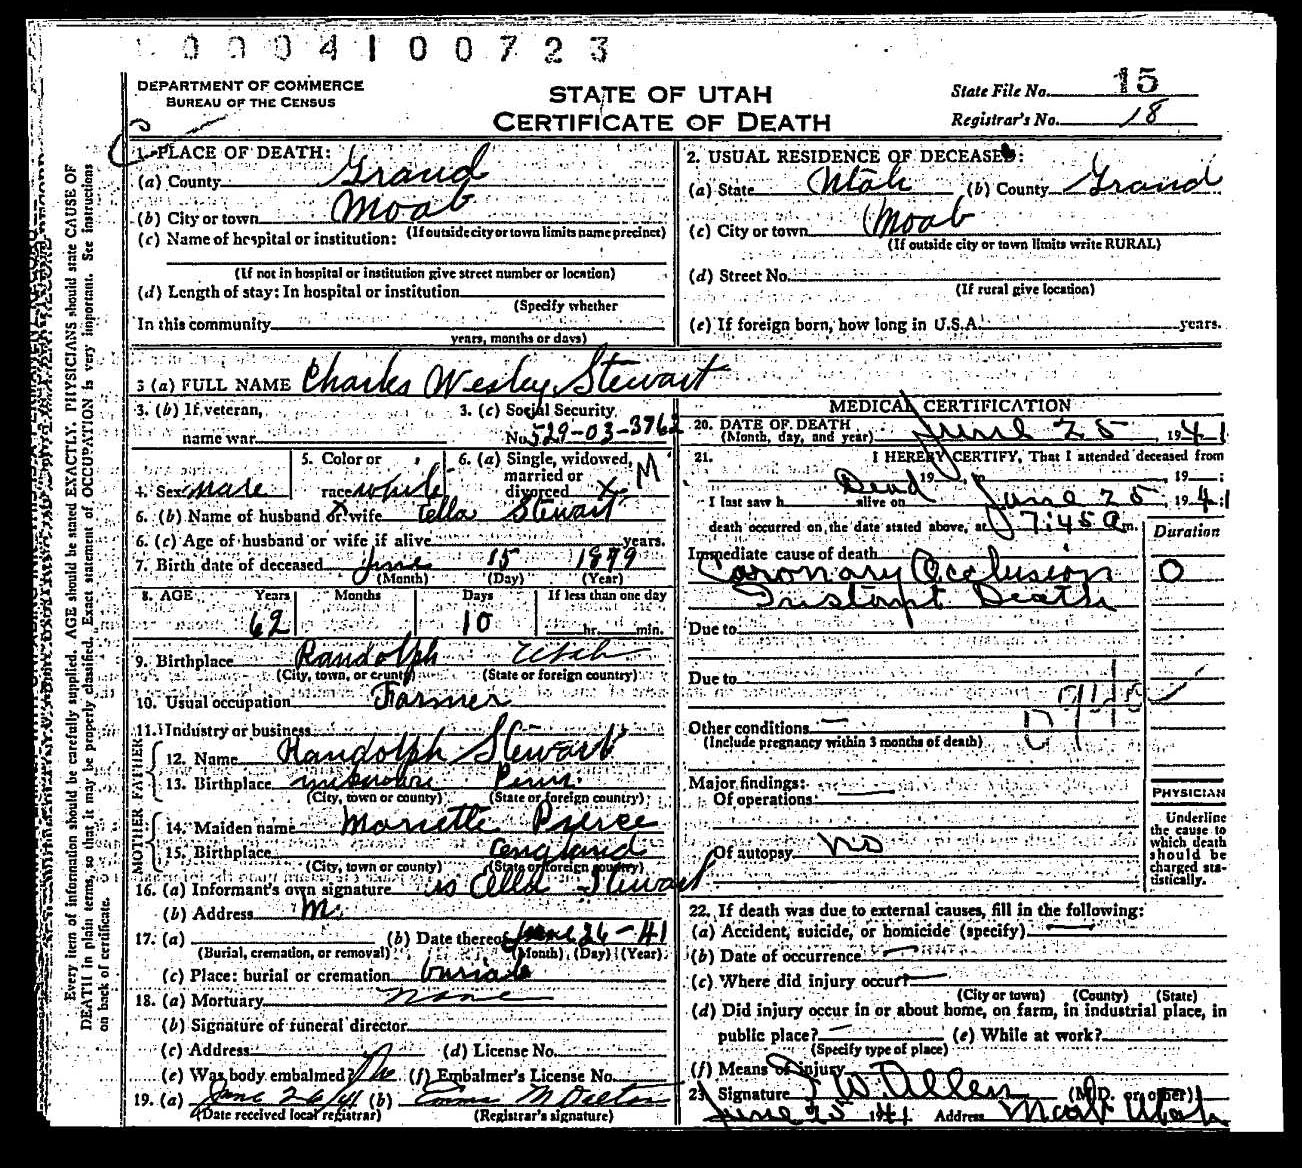 0004100723
DEPARTMENT OF COMMERCE
BUREAU OF THE CENSUS
STATE OF UTAH
CERTIFICATE OF DEATH
State File No. 15
Registrar's No. 18
1. PLACE OF DEATH:
(a) County Grand
(b) City or town Moab
(If outside city or town limits name precinct)
(c) Name of hospital or institution:
(If not in hospital or institution give street number or location)
(d) Length of stay: In hospital or institution
(Specify whether
In this community
years, months or days)
2. USUAL RESIDENCE OF DECEASED:
(a) State Utah (b) County Grand
(c) City or town Moab
(If outside city or town limits write RURAL)
(d) Street No.
(If rural give location)
(e) If foreign born, how long in U.S.A. years.
3 (a) FULL NAME Charles Wesley Stewart
3. (b) If veteran,
name war
3. (c) Social Security
No. 529-03-3762
4. Sex male
5. Color or
race white
6. (a) Single, widowed,
married or
divorced M
6. (b) Name of husband or wife Ella Stewart
6. (c) Age of husband or wife if alive years.
7. Birth date of deceased June 15 1879
(Month) (Day) (Year)
8. AGE Years Months Days If less than one day
62 10 hr. min.
9. Birthplace Randolph Utah
(City, town, or county) (State or foreign country)
10. Usual occupation Farmer
11. Industry or business
FATHER
12. Name Randolph Stewart
13. Birthplace Penn.
(City, town or county) (State or foreign country)
MOTHER
14. Maiden name Pierce
15. Birthplace England
(City, town or county) (State or foreign country)
16. (a) Informant's own signature Ella Stewart
(b) Address M.
17. (a) (b) Date thereof June 26-41
(Burial, cremation, or removal) (Month) (Day) (Year)
(c) Place: burial or cremation burial
18. (a) Mortuary none
(b) Signature of funeral director
(c) Address (d) License No.
(e) Was body embalmed? No (f) Embalmer's License No.
19. (a) June 26/41 (b)
(Date received local registrar) (Registrar's signature)
MEDICAL CERTIFICATION
20. DATE OF DEATH
(Month, day, and year) June 25, 1941
21. I HEREBY CERTIFY, That I attended deceased from
19 19
I last saw h Dead alive on June 25, 1941
death occurred on the date stated above, at 7:45 a m.
Duration
Immediate cause of death
Coronary Occlusion 0
Death
Due to
Due to
Other conditions —
(Include pregnancy within 3 months of death)
Major findings:
Of operations: —
Of autopsy no
PHYSICIAN
Underline
the cause to
which death
should be
charged sta-
tistically.
22. If death was due to external causes, fill in the following:
(a) Accident, suicide, or homicide (specify) —
(b) Date of occurrence —
(c) Where did injury occur? —
(City or town) (County) (State)
(d) Did injury occur in or about home, on farm, in industrial place, in
public place? — (e) While at work?
(Specify type of place)
(f) Means of injury
23. Signature W. Allen (M.D. or other)
June 25 1941 Address Moab Utah
Every item of information should be carefully supplied. AGE should be stated EXACTLY. PHYSICIANS should state CAUSE OF
DEATH in plain terms, so that it may be properly classified. Exact statement of OCCUPATION is very important. See instructions
on back of certificate.